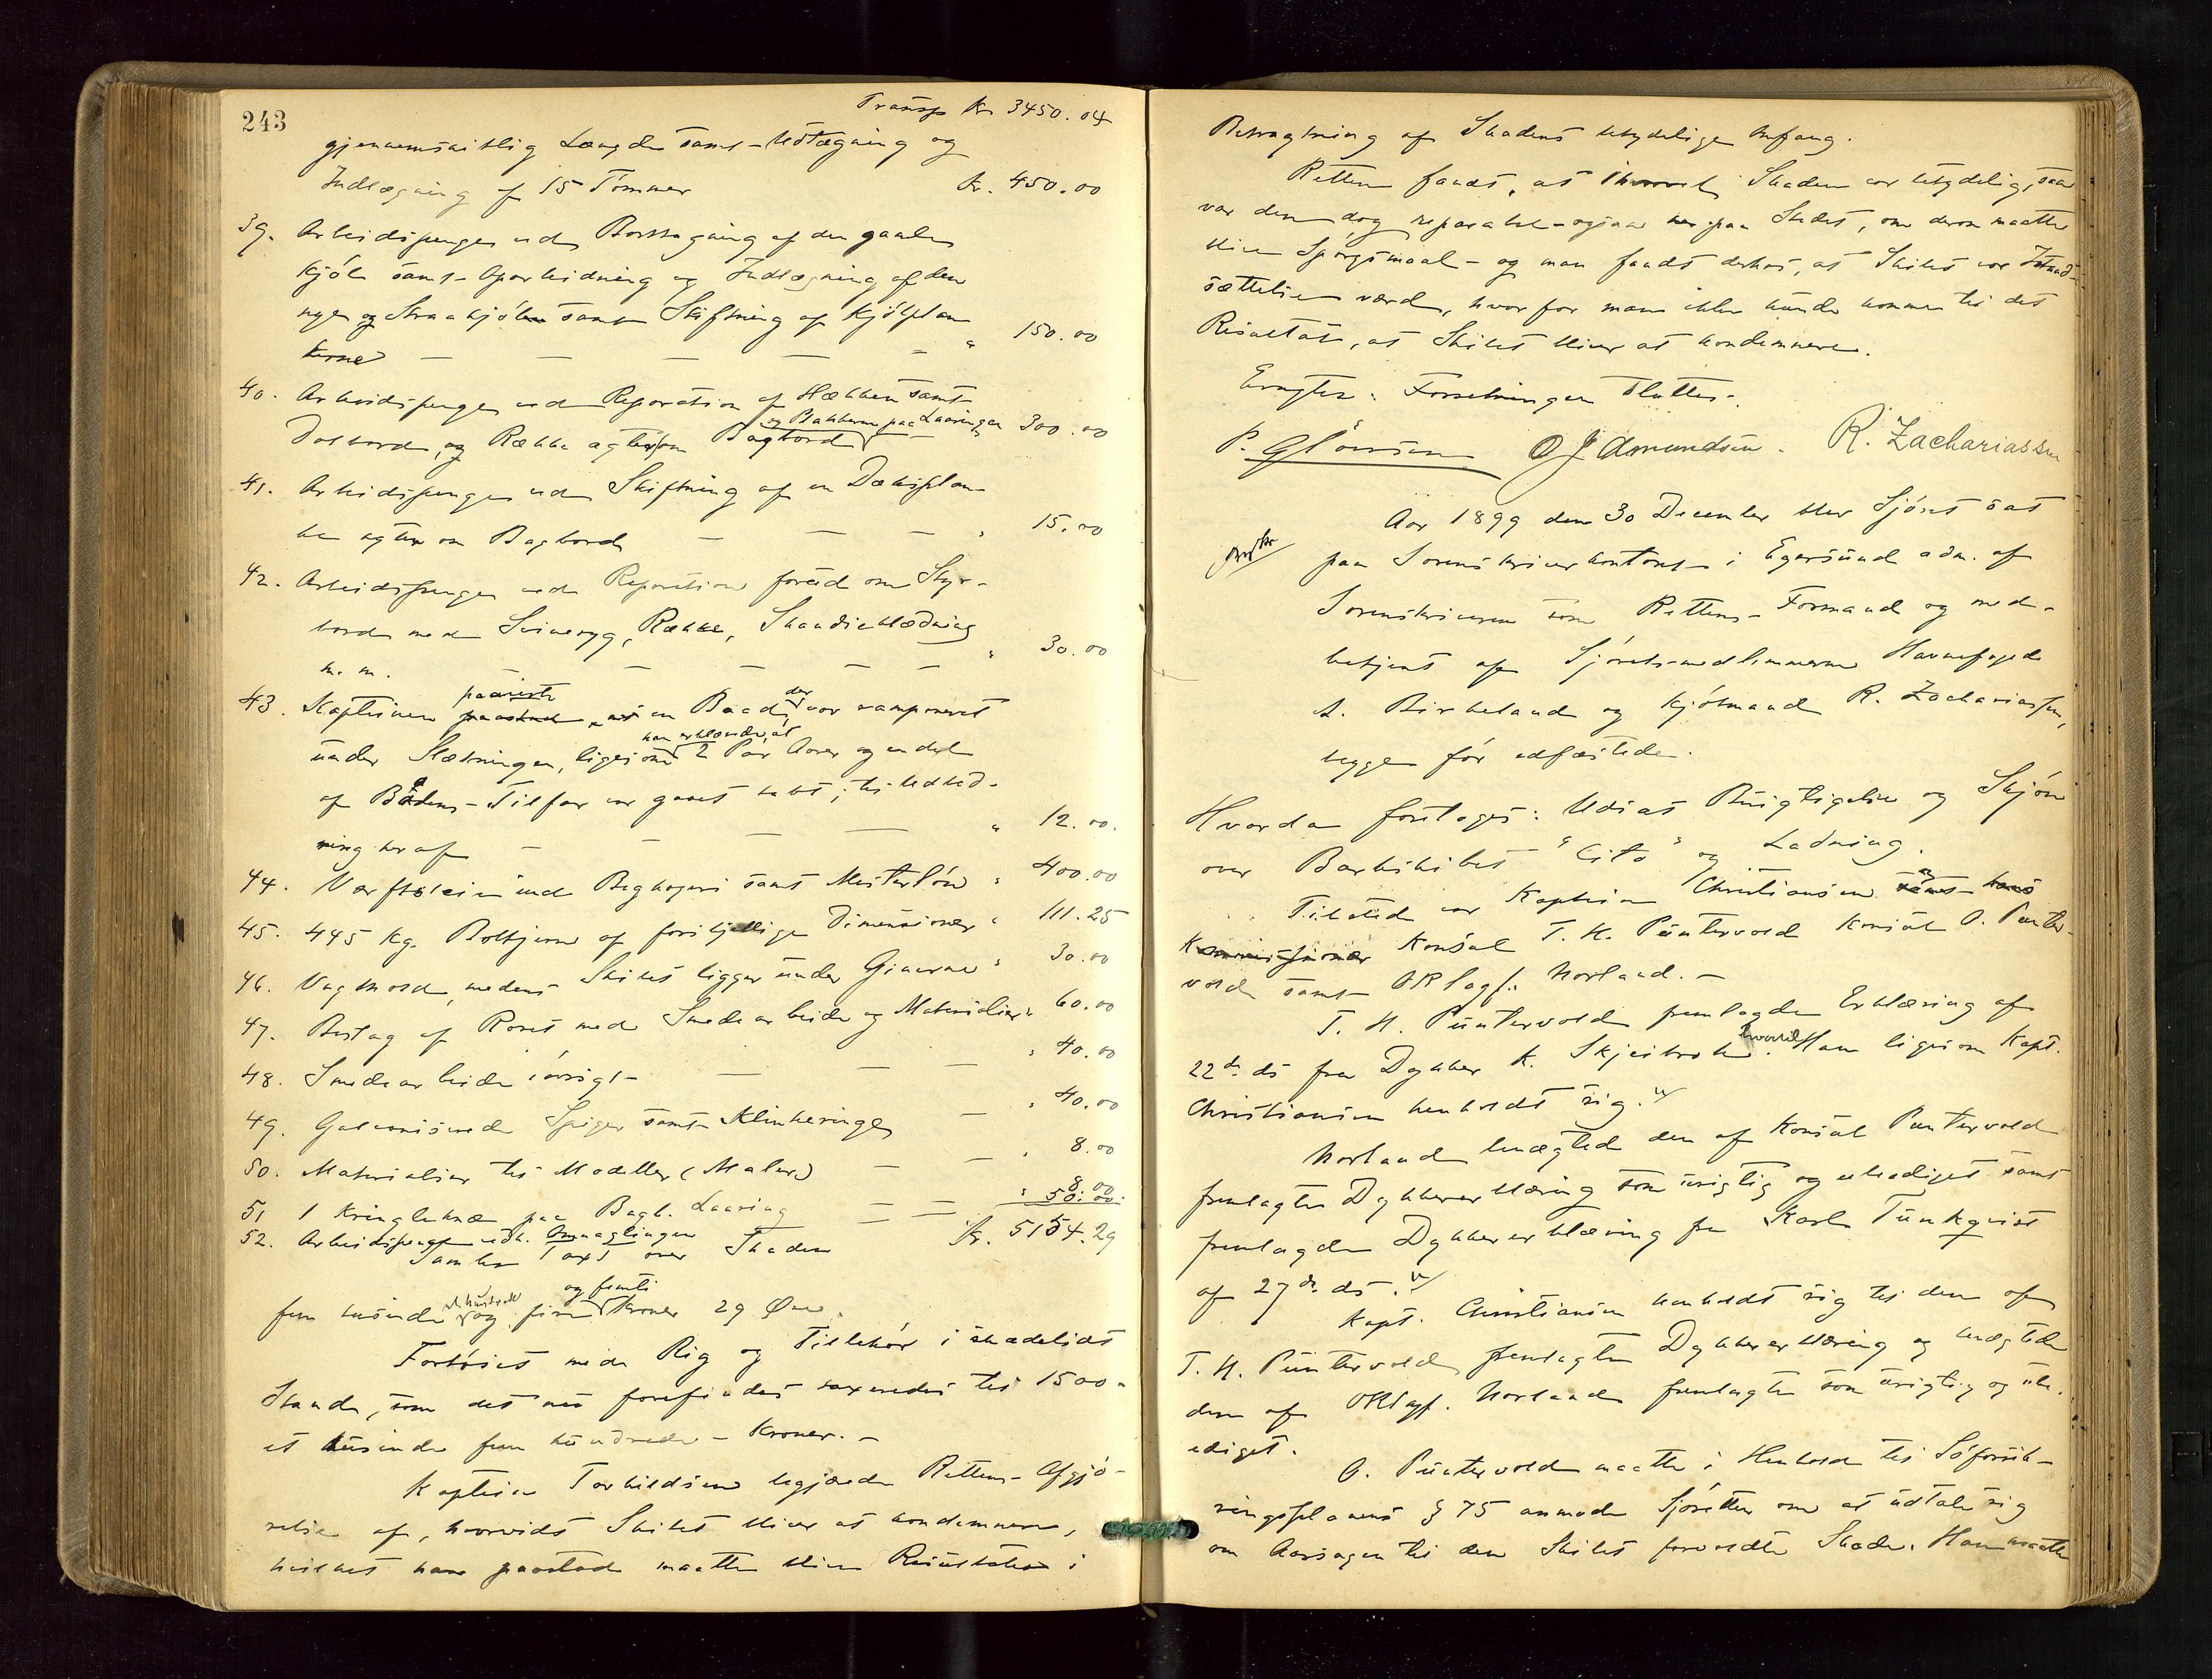 243
Transp Kr. 3450.04
gjennemsnitlig Længde samt Udtagning og
Indlægning af 15 Tømmer Kr. 450.00
39. Arbeidspenge ved Borttagning af den gamle
Kjøl samt Oparbeidning og Indlægning af den
nye og Straakjølen samt Skiftning af Kjølplan
kerne — — — — — " 150.00
40. Arbeidspenge ved Reparation af Hækken samt
og Bakkerne paa Laaringen
Dolbord, og Række agter om Bagbord — 300.00
41. Arbeidspenge ved Skiftning af en Dæksplan-
ke agter om Bagbord — — — " 15.00
42. Arbeidspenge ved Reparation forud om Styr-
bord med Svineryg, Række, Skandseklædning
m. m. — — — — " 30.00
43. Kapteinen paaviste en Baad, der var ramponeret
under Slæbningen, ligesom han erklærede, at 2 Par Aarer og en del
af Baadens Tilfar var gaaet tabt; til Udbed-
ring heraf — — — — " 12.00.
44. Værftsleie med Baghageri samt Mesterløn " 400.00
45. 445 Kg. Boltjern af forskjellige Dimensioner " 111.25
46. Vagthold, medens Skibet ligger under Gjørme " 30.00
47. Beslag af Roret med Smedearbeide og Materialier " 60.00
48. Smedearbeide iøvrigt — — — " 40.00
49. Galvaniserede Spiger samt Klinkeringe — " 40.00
50. Materialier til Modeller (Maler) — — " 8.00
51 1 Kringleknæ paa Bagb. Laaring — — " 8.00
52. Arbeidspenge vedk. Omnaglingen — — " 50.00.
Samlet Taxt over Skaden Kr. 5154.29
fem tusinde et hundrede og fire og femti Kroner 29 Øre.
Fartøiet med Rig og Tilbehør i skadelidt
Stand, som det nu forefindes taxeredes til 1500-
et tusinde fem hundrede - Kroner. -
Kaptein Torkildsen begjærede Rettens Afgjø-
relse af, hvorvidt Skibet bliver at kondemnere,
hvilket han paastod maatte blive Resultatet i
Betragtning af Skadens betydelige Omfang.
Retten fandt, at ihvorvel Skaden var betydelig, saa
var den dog reparabel - ogsaa her paa Stedet, om derom maatte
blive Spørgsmaal - og man fandt derhos, at Skibet var Istand-
sættelse værd, hvorfor man ikke kunde komme til det
Resultat, at Skibet bliver at kondemnere.
Forretningen sluttet.
O J Amundsen. R. Zachariassen
Aar 1899 den 30 December blev Sjøret sat
paa Sorenskriverkontoret i Egersund adm. af
Sorenskriveren som Rettens Formand og med-
betjent af Sjøretsmedlemmerne Havnefoged
A. Birkeland og Kjøbmand R. Zachariassen,
begge før edfæstede.
Hvorda foretoges: Udsat Besigtigelse og Skjøn
over Barkskibet "Cito" og Ladning.
Tilstede var Kaptein Christiansen og
Kommissionær Konsul T. H. Püntervold Konsul O. Pünter-
vold samt ORsagf. Norland. -
T. H. Püntervold fremlagde Erklæring af
22de ds fra Dykker K. Skjeibrok hvortil Han ligesom Kapt.
Christiansen henholdt sig.
Norland benægted den af Konsul Püntervold
fremlagte Dykkererklæring som urigtig og ubeediget samt
fremlagde Dykkererklæring fra Karl Tünkqvist
af 27de ds.
Kapt. Christiansen henholdt sig til den af
T. H. Püntervold fremlagte Dykkererklæring og benægtede
den af ORsagf. Norland fremlagte som urigtig og ube-
ediget.
O. Püntervold maatte i Henhold til Søforsik-
ringsplanens § 75 anmode Sjøretten om at udtale sig
om Aarsagen til den Skibet forvoldte Skade. Han maatte